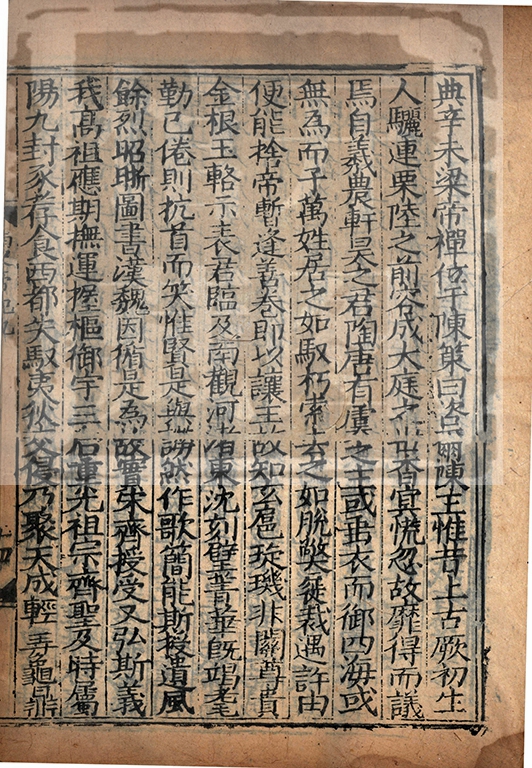 典辛未梁帝禪位于陳策曰咨爾陳王惟昔上古厥初生
人驪連栗陸之前容成大庭之世杳冥慌忽故靡得而議
焉自羲農軒昊之君陶唐有虞之主或垂衣而御四海或
無為而子萬姓居之如馭朽索去之如脫弊徙裁遇許由
便能捨帝暫逢善卷即以讓王故知玄扈琁璣非關尊貴
金根玉輅示表君臨及南觀河渚東沈刻璧菁華旣竭耄
勤已倦則抗首而笑惟賢是與謗然作歌簡能斯授遺風
餘烈昭晰圖書漢魏因循是為故實宋齊授受又弘斯義
我髙祖應期撫運握樞御宇三后重光祖宗齊聖及時屬
陽九封豕荐食西都失馭夷狄交侵乃聚天成輕弄龜鼎